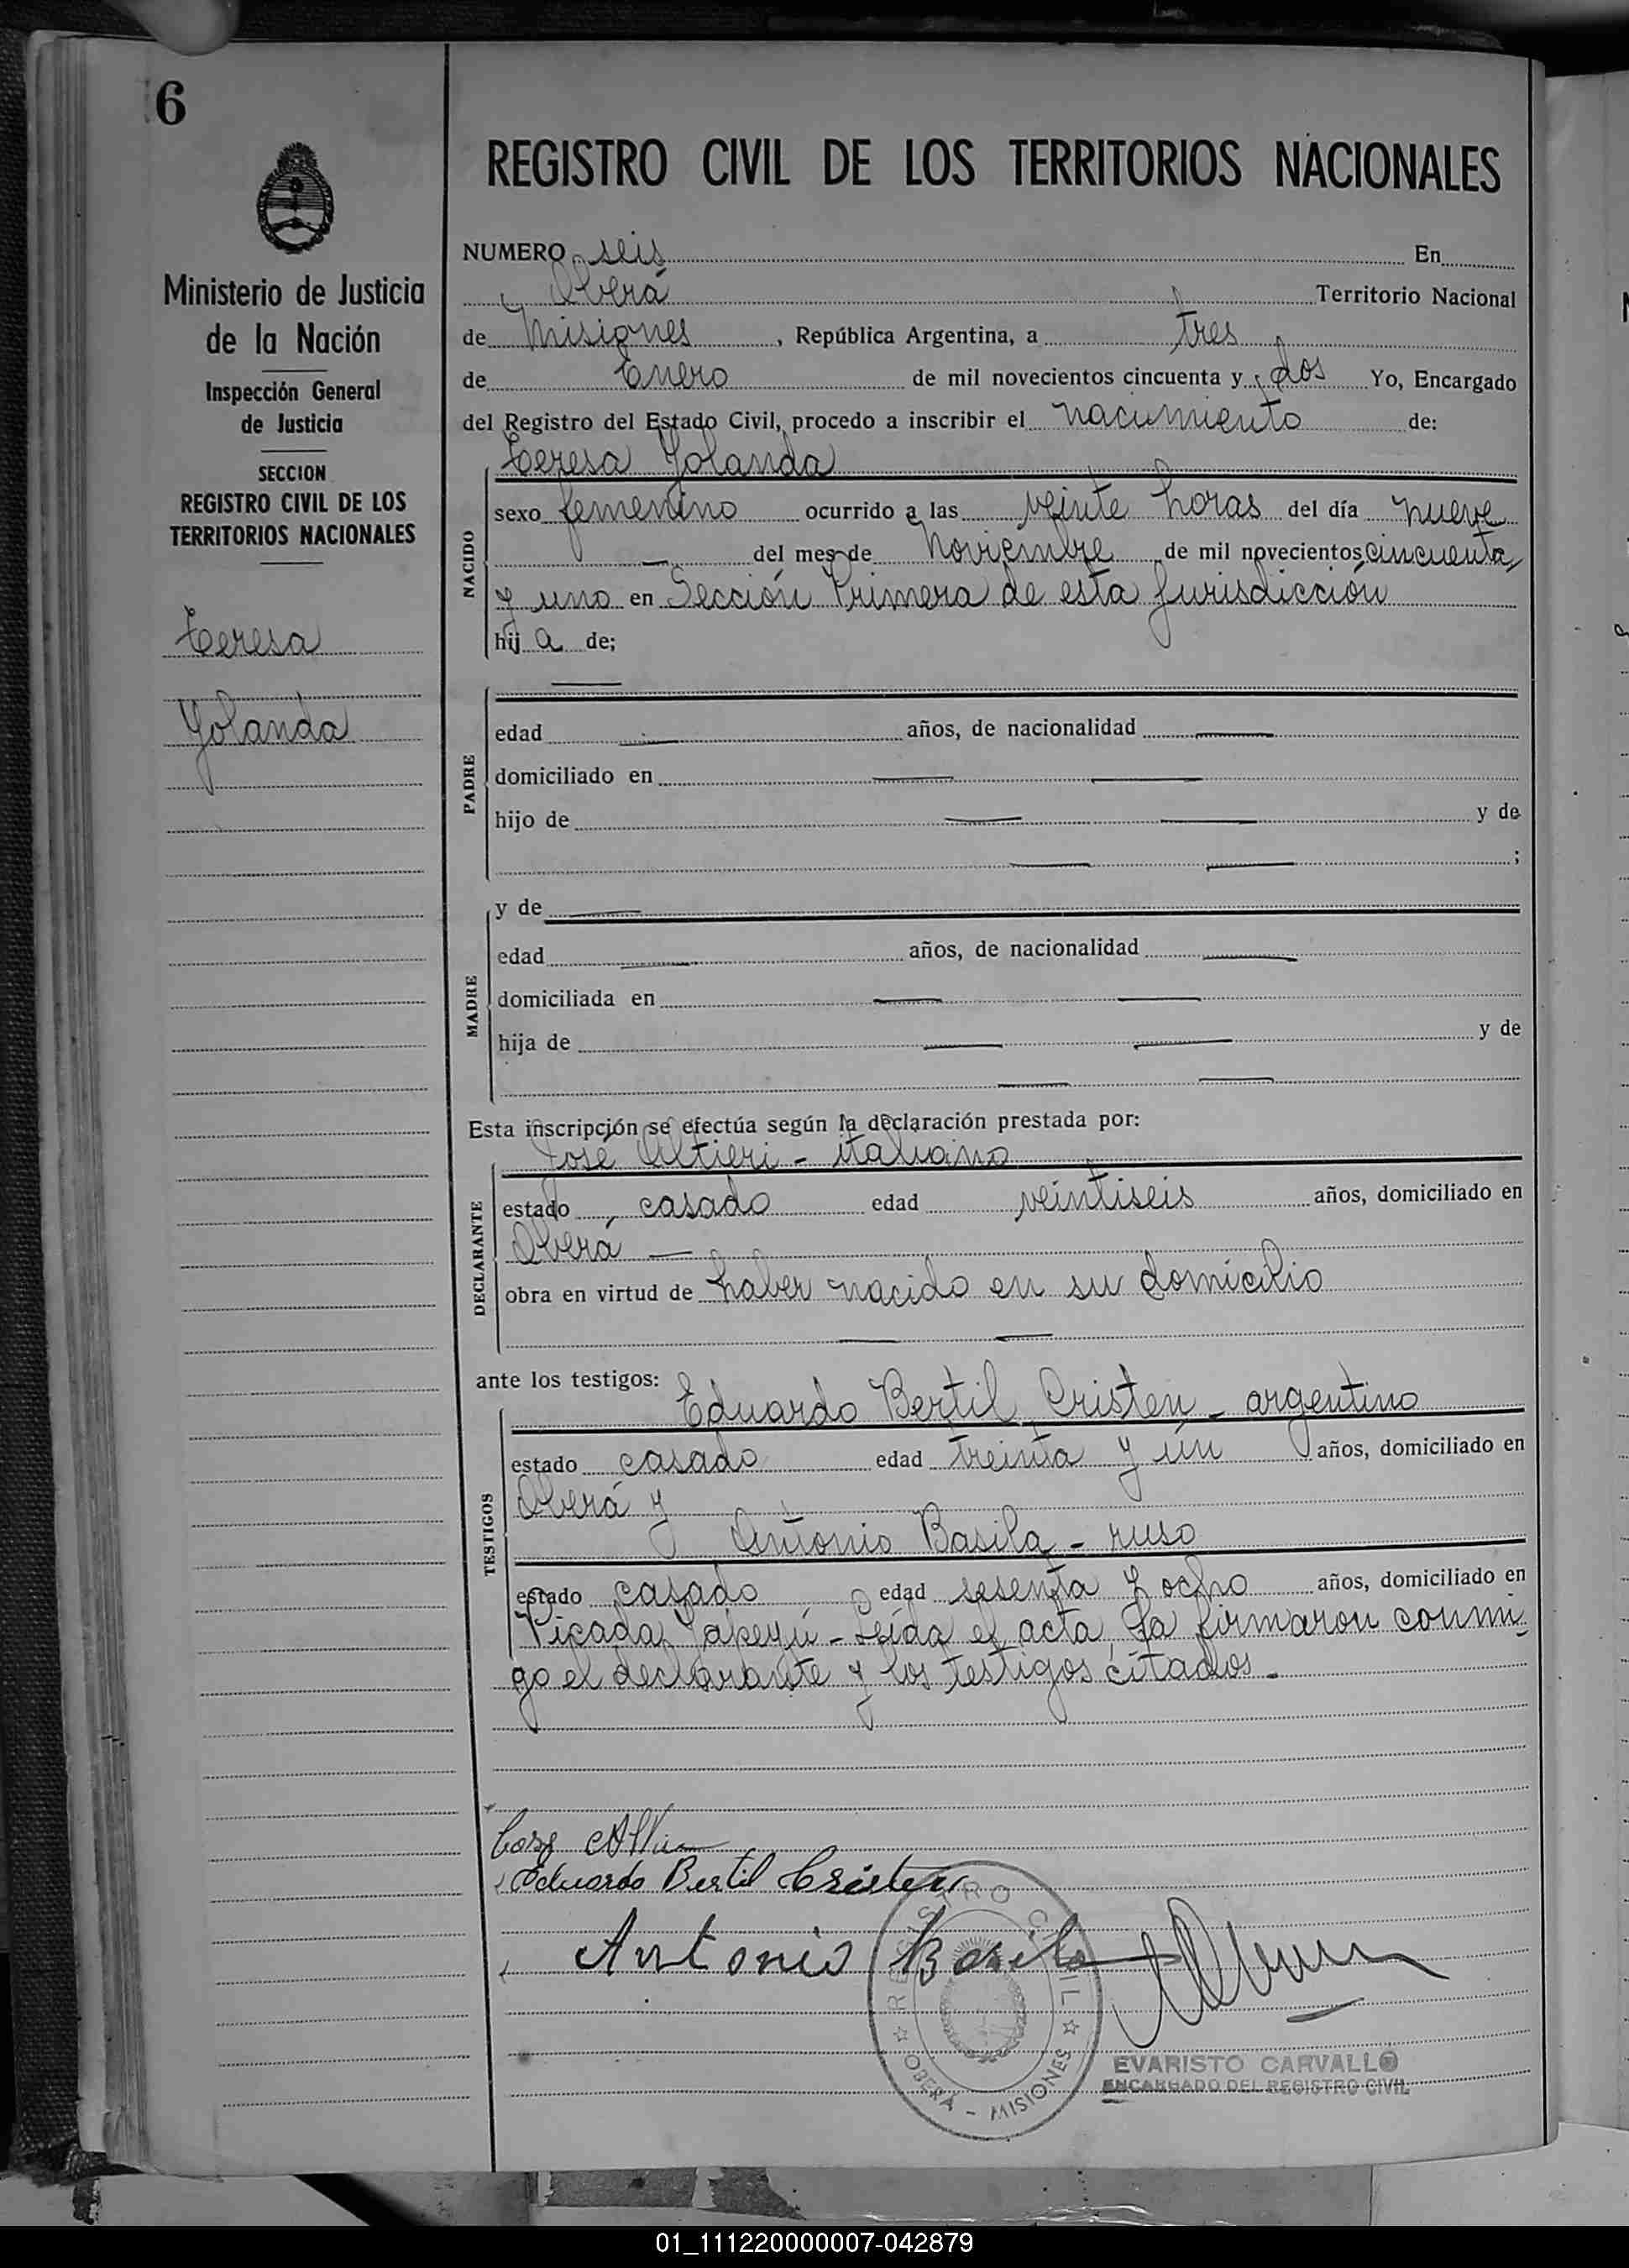 6
Ministerio de Justicia
de la Nación
Inspección General
de Justicia
SECCION
REGISTRO CIVIL DE LOS
TERRITORIOS NACIONALES
Teresa
Yolanda
REGISTRO CIVIL DE LOS TERRITORIOS NACIONALES
NUMERO seis En
Oberá Territorio Nacional
de Misiones, República Argentina, a tres
de Enero de mil novecientos cincuenta y dos Yo, Encargado
del Registro del Estado Civil, procedo a inscribir el nacimiento de:
Teresa Yolanda
NACIDO
sexo femenino ocurrido a las veinte horas del día nueve
— del mes de Noviembre de mil novecientos cincuenta
y uno en Sección Primera de esta Jurisdicción
hij a de;
—
PADRE
edad — años, de nacionalidad —
domiciliado en — —
hijo de — — y de
— — ;
MADRE
y de —
edad — años, de nacionalidad —
domiciliada en — —
hija de — — y de
— —
Esta inscripción se efectúa según la declaración prestada por:
José Altieri - italiano
DECLARANTE
estado casado edad veintiseis años, domiciliado en
Oberá —
obra en virtud de haber nacido en su domicilio
— —
ante los testigos:
Eduardo Bertil Cristen - argentino
TESTIGOS
estado casado edad treinta y ún años, domiciliado en
Oberá y
Antonio Basila - ruso
estado casado edad sesenta y ocho años, domiciliado en
Picada Yapeyú - Leída el acta, la firmaron conmi
go el declarante y los testigos citados.-
Eduardo Bertil Cristen
Antonio Basila
REGISTRO CIVIL
OBERA - MISIONES
EVARISTO CARVALLO
ENCARGADO DEL REGISTRO CIVIL
01_111220000007-042879